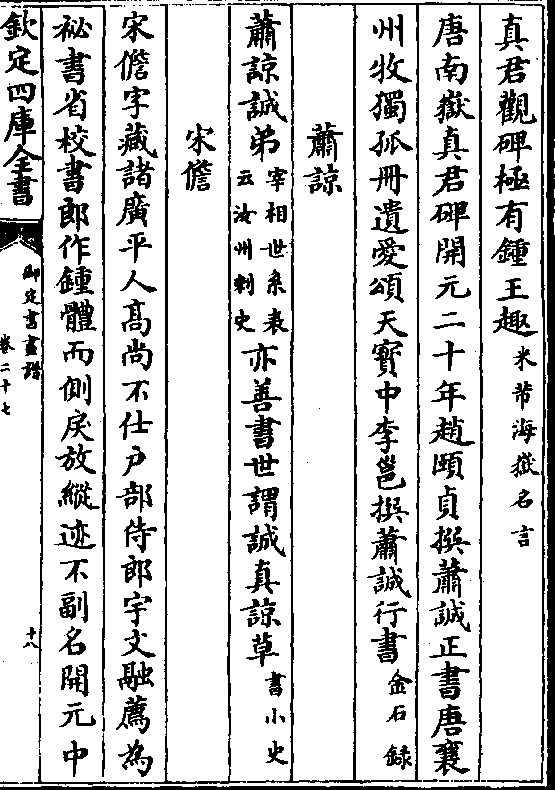 真君觀碑極有鍾王趣米芾海嶽名言
唐南嶽真君碑開元二十年趙頤貞撰蕭誠正書唐襄
州牧獨孤冊遺愛頌天寶中李邕撰蕭誠行書金石錄
蕭諒
蕭諒誠弟宰相世系表云汝州刺史亦善書世謂誠真諒草書小史
宋儋
宋儋字藏諸廣平人髙尚不仕戸部侍郎宇文融薦為
祕書省校書郎作鍾體而側戾放縱迹不副名開元中
欽定四庫全書
御定書畫譜
卷二十七
十八